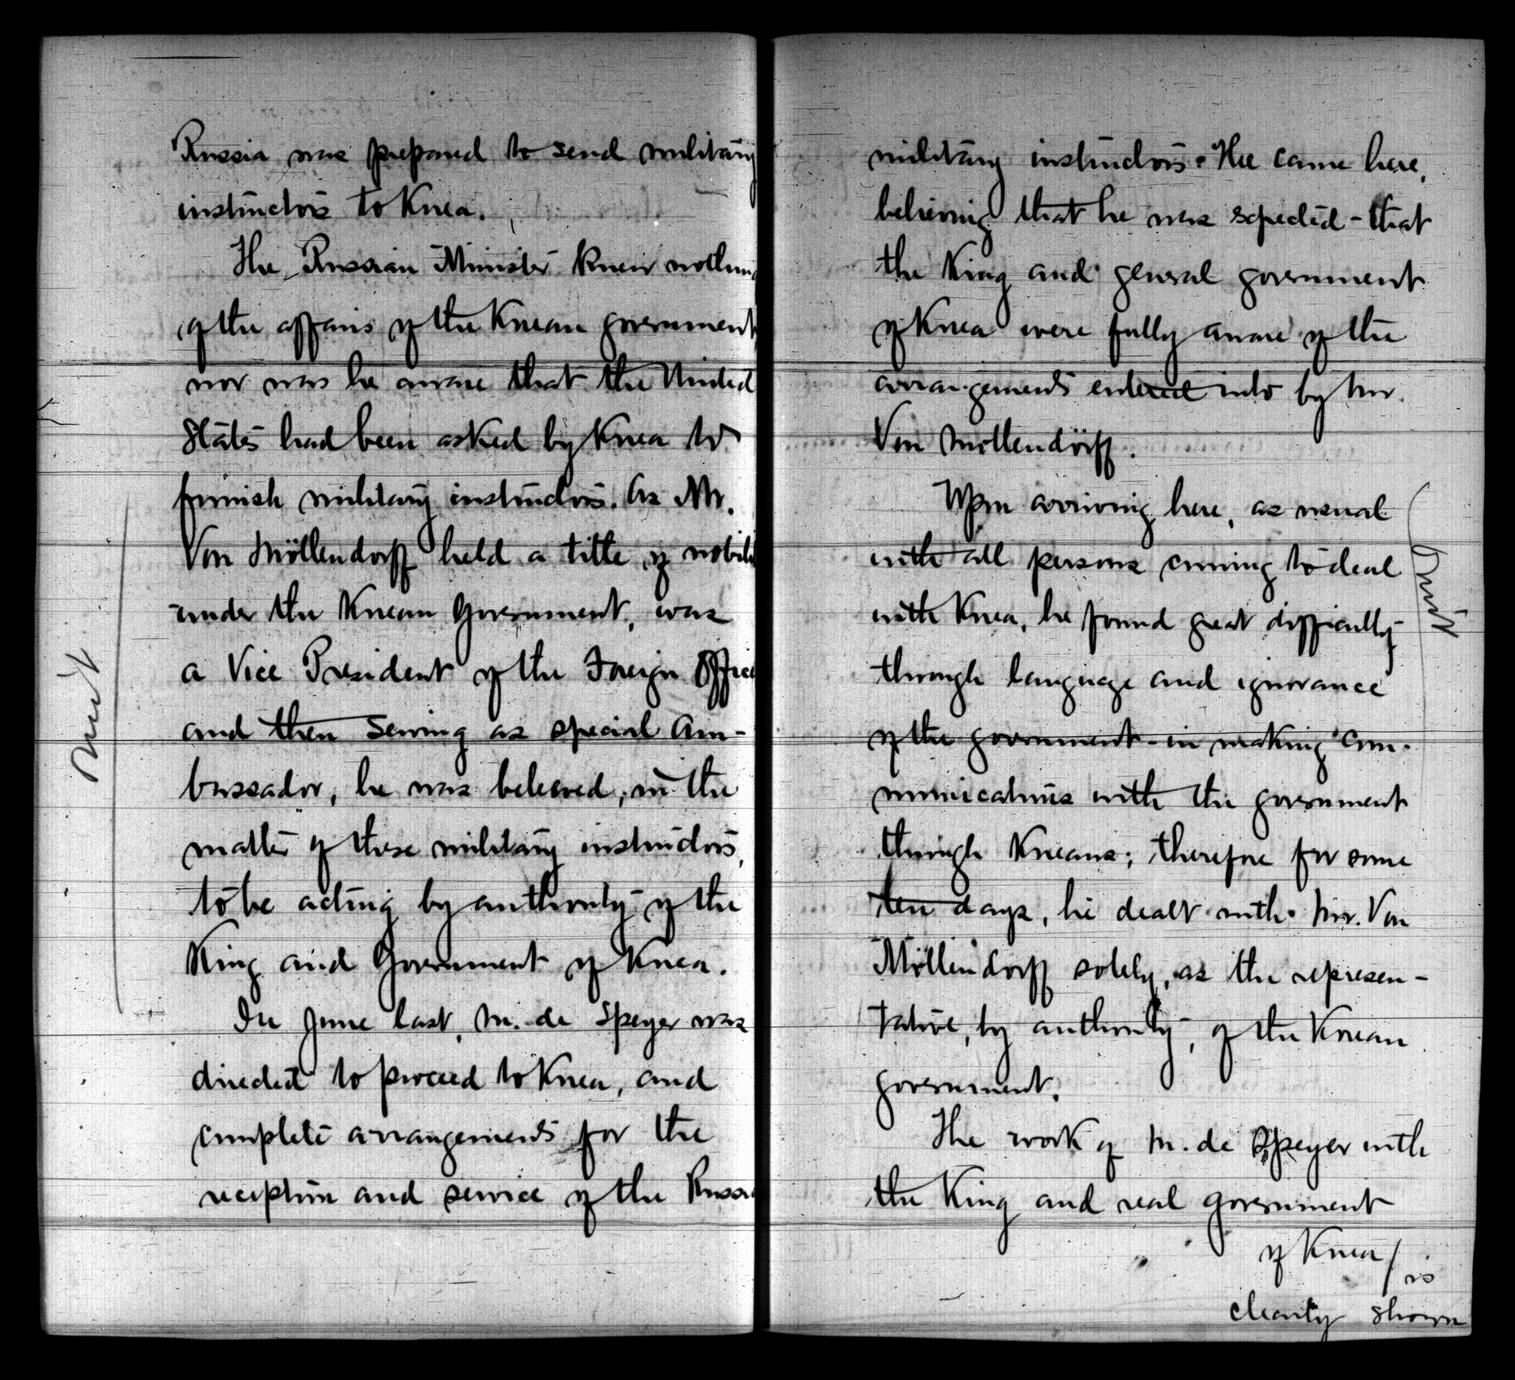 Russia was prepared to send military
instructors to Korea.
The Russian Minister knew nothing
of the affairs of the Korean government
nor was he aware that the United
States had been asked by Korea to
furnish military instructors. As Mr.
Von Möllendorff held a title of nobili
under the Korean Government, was
a Vice President of the Foreign Office
and then serving as special Am-
bassador, he was believed, in the
matter of these military instructors,
to be acting by authority of the
King and Government of Korea.
In June last, M. de Speyer was
directed to proceed to Korea, and
complete arrangements for the
reception and service of the Russia
omit
military instructors. He came here,
believing that he was expected - that
the King and general government
of Korea were fully aware of the
arrangements entered into by Mr.
Von Möllendörff.
Upon arriving here, as usual
with all persons coming to deal
with Korea, he found great difficulty
through language and ignorance
of the government - in making com-
munications with the government
through Koreans; therefore for some
ten days, he dealt with Mr. Von
Möllendorff solely, as the represen-
tative, by authority, of the Korean
government.
The work of M. de Speyer with
the King and real government
of Korea / is
clearly shown
omit